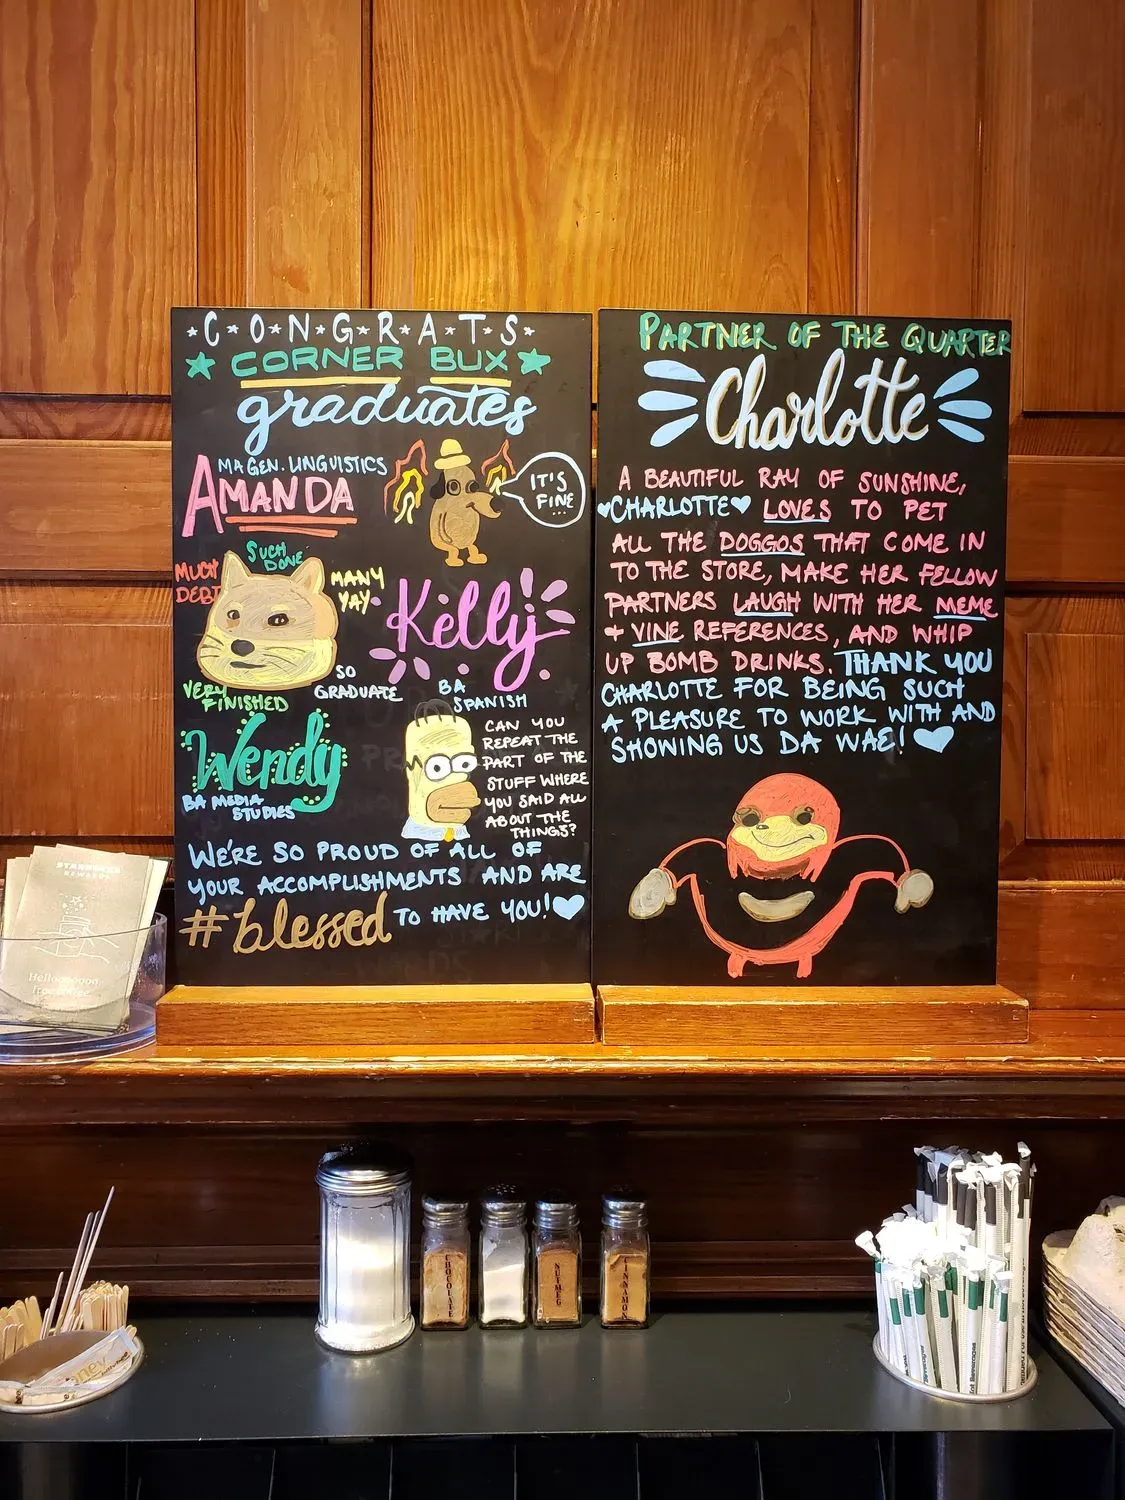 C*O*N*G*R*A*T*S
CORNER BUX
graduates
MA GEN. LINGUISTICS
AMANDA
IT'S
FINE
...
SUCH
DONE
MUCH
DEBT
MANY
YAY
VERY
FINISHED
SO
GRADUATE
Kelly
BA
SPANISH
Wendy
BA MEDIA
STUDIES
CAN YOU
REPEAT THE
PART OF THE
STUFF WHERE
YOU SAID ALL
ABOUT THE
THINGS?
WE'RE SO PROUD OF ALL OF
YOUR ACCOMPLISHMENTS AND ARE
#blessed TO HAVE YOU!
PARTNER OF THE QUARTER
Charlotte
A BEAUTIFUL RAY OF SUNSHINE,
CHARLOTTE LOVES TO PET
ALL THE DOGGOS THAT COME IN
TO THE STORE, MAKE HER FELLOW
PARTNERS LAUGH WITH HER MEME
+ VINE REFERENCES, AND WHIP
UP BOMB DRINKS. THANK YOU
CHARLOTTE FOR BEING SUCH
A PLEASURE TO WORK WITH AND
SHOWING US DA WAE!
STARBUCKS
REWARDS
CHOCOLATE
NUTMEG
CINNAMON